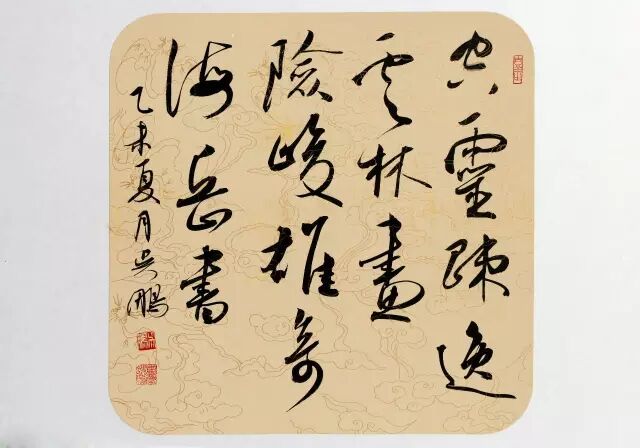 空靈疎逸
雲林畫
險峻雄奇
海岳書
乙未夏月吳鵬